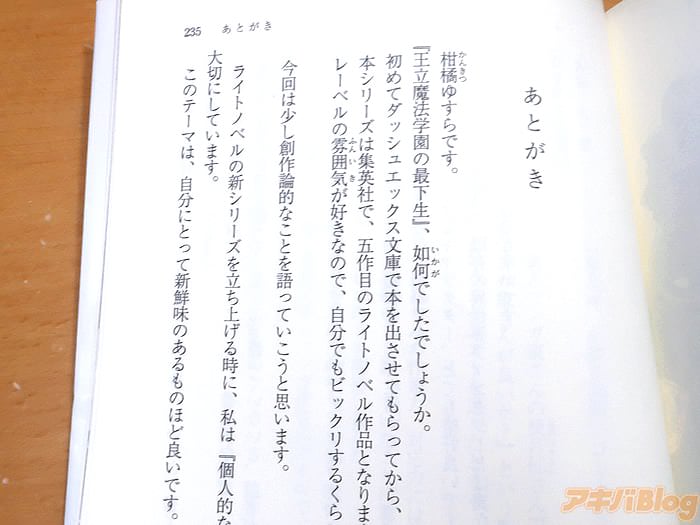 235 あとがき
あとがき
柑橘ゆすらです。
かんきつ
『王立魔法学園の最下生』、如何でしたでしょうか。
いかが
初めてダッシュエックス文庫で本を出させてもらってから、
本シリーズは集英社で、五作目のライトノベル作品となりま
レーベルの雰囲気が好きなので、自分でもビックリするくら
ふんいき
今回は少し創作論的なことを語っていこうと思います。
ライトノベルの新シリーズを立ち上げる時に、私は『個人的な
大切にしています。
このテーマは、自分にとって新鮮味のあるものほど良いです。
アキバBlog